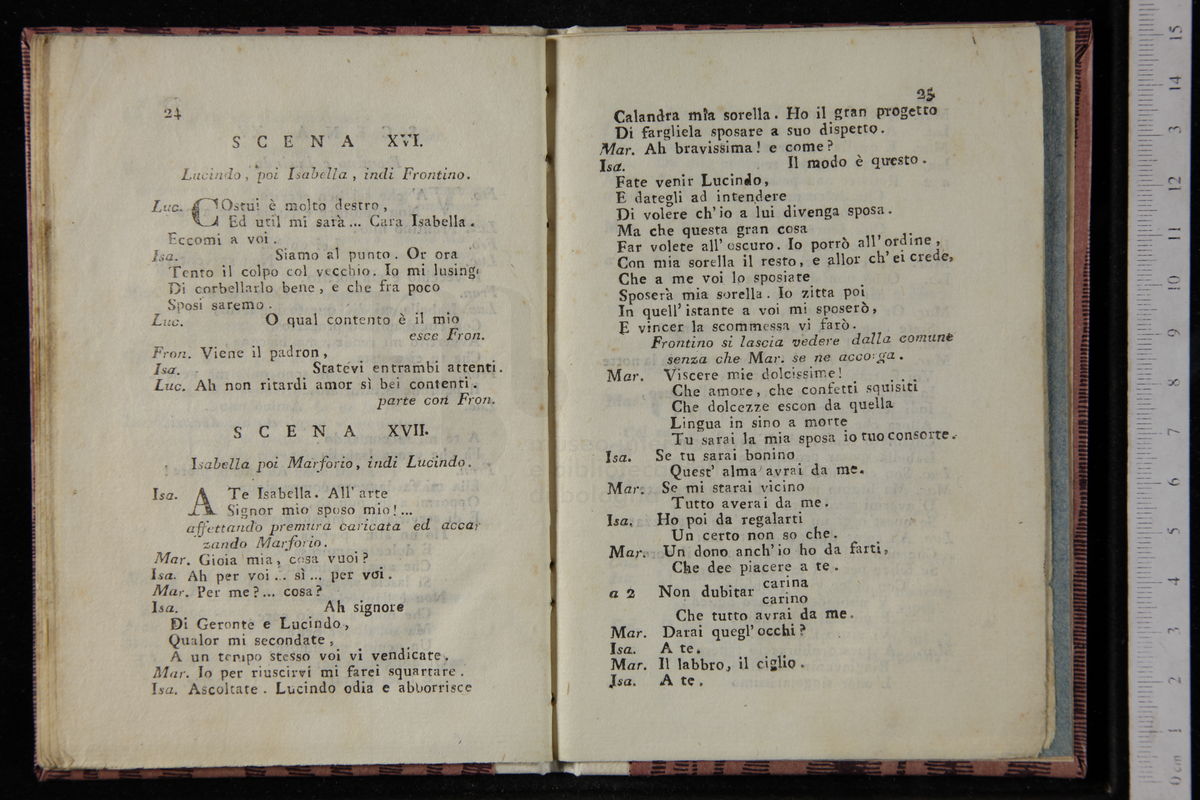 24
SCENA XVI.
Lucindo, poi Isabella, indi Frontino.
Luc. COstui è molto destro,
Ed util mi sarà... Cara Isabella.
Eccomi a voi.
Isa. Siamo al punto. Or ora
Tento il colpo col vecchio. Io mi lusingo
Di corbellarlo bene, e che fra poco
Sposi saremo.
Luc. O qual contento è il mio
esce Fron.
Fron. Viene il padron,
Isa. Statevi entrambi attenti.
Luc. Ah non ritardi amor sì bei contenti.
parte con Fron.
SCENA XVII.
Isabella poi Marforio, indi Lucindo.
Isa. A Te Isabella. All'arte
Signor mio sposo mio!...
affettando premura caricata ed accar
zando Marforio.
Mar. Gioia mia, cosa vuoi?
Isa. Ah per voi... sì... per voi.
Mar. Per me?... cosa?
Isa. Ah signore
Di Geronte e Lucindo,
Qualor mi secondate,
A un tempo stesso voi vi vendicate.
Mar. Io per riuscirvi mi farei squartare.
Isa. Ascoltate. Lucindo odia e abborrisce
25
Calandra mia sorella. Ho il gran progetto
Di fargliela sposare a suo dispetto.
Mar. Ah bravissima! e come?
Isa. Il modo è questo.
Fate venir Lucindo,
E dategli ad intendere
Di volere ch'io a lui divenga sposa.
Ma che questa gran cosa
Far volete all'oscuro. Io porrò all'ordine,
Con mia sorella il resto, e allor ch'ei crede,
Che a me voi lo sposiate
Sposerà mia sorella. Io zitta poi
In quell'istante a voi mi sposerò,
E vincer la scommessa vi farò.
Frontino si lascia vedere dalla comune
senza che Mar. se ne accorga.
Mar. Viscere mie dolcissime!
Che amore, che confetti squisiti
Che dolcezze escon da quella
Lingua in sino a morte
Tu sarai la mia sposa io tuo consorte.
Isa. Se tu sarai bonino
Quest' alma avrai da me.
Mar. Se mi starai vicino
Tutto averai da me.
Isa. Ho poi da regalarti
Un certo non so che.
Mar. Un dono anch'io ho da farti,
Che dee piacere a te.
a 2 Non dubitar carina
carino
Che tutto avrai da me.
Mar. Darai quegl'occhi?
Isa. A te.
Mar. Il labbro, il ciglio.
Isa. A te.